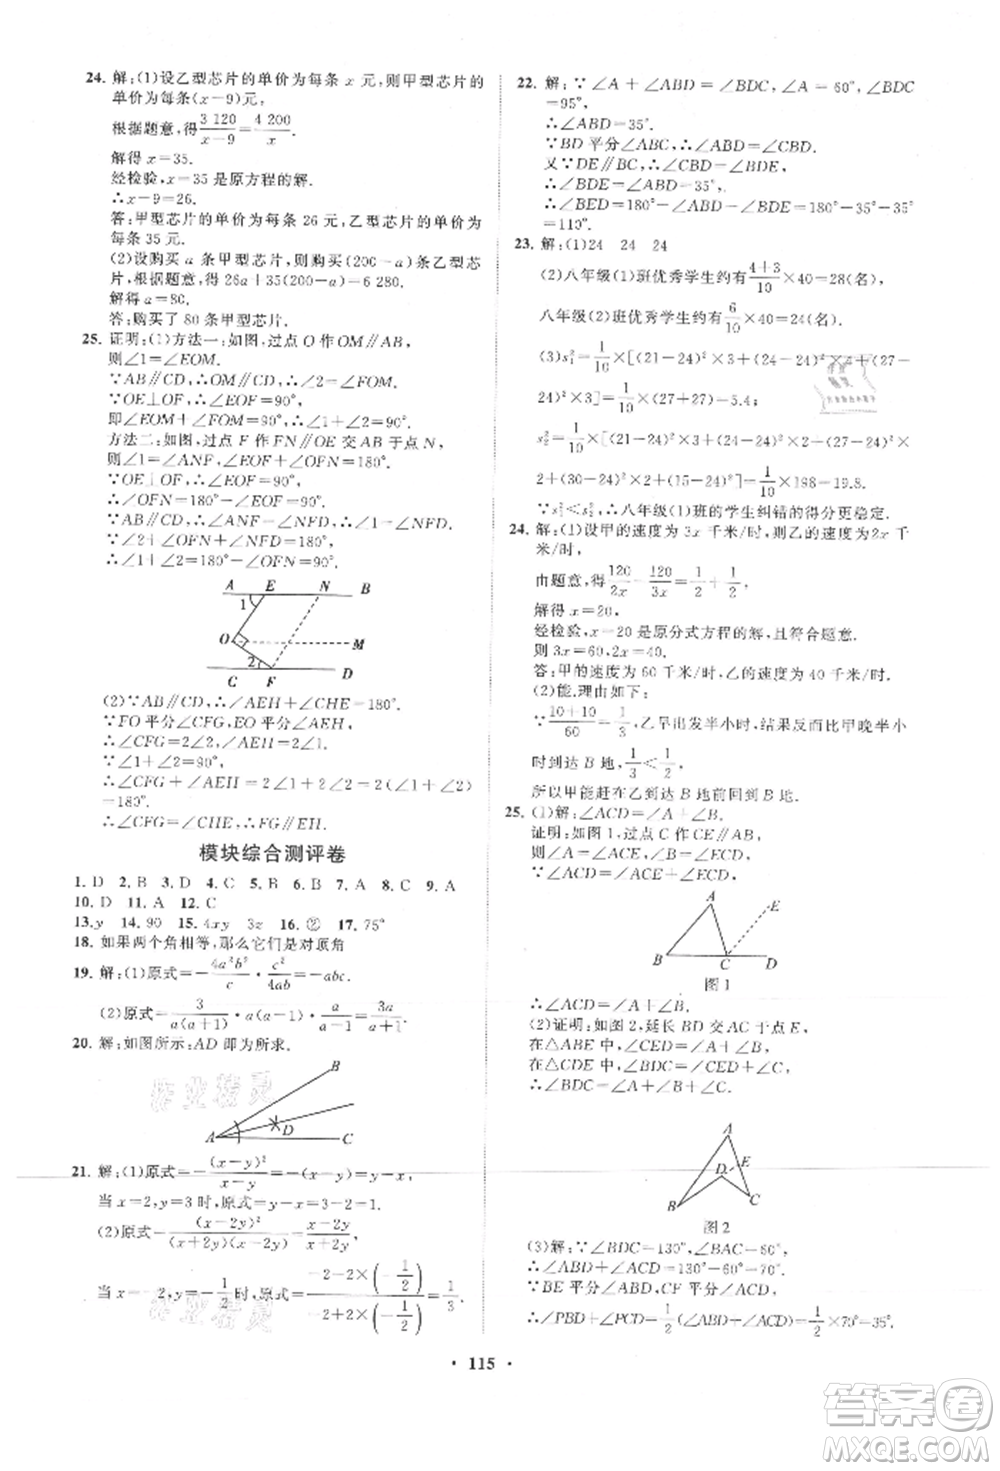 24. 解:(1)设乙型芯片的单价为每条 x 元,则甲型芯片的
单价为每条(x-9)元,
根据题意,得 3 120/(x-9)=4 200/x.
解得 x=35.
经检验,x=35 是原方程的解.
∴x-9=26.
答:甲型芯片的单价为每条 26 元,乙型芯片的单价为
每条 35 元.
(2)设购买 a 条甲型芯片,则购买(200-a)条乙型芯
片,根据题意,得 26a+35(200-a)=6 280.
解得 a=80.
答:购买了 80 条甲型芯片.
25. 证明:(1)方法一:如图,过点 O 作 OM∥AB,
则∠1=∠EOM.
∵AB∥CD,∴OM∥CD.∴∠2=∠FOM.
∵OE⊥OF,∴∠EOF=90°,
即∠EOM+∠FOM=90°.∴∠1+∠2=90°.
方法二:如图,过点 F 作 FN∥OE 交 AB 于点 N,
则∠1=∠ANF,∠EOF+∠OFN=180°.
∵OE⊥OF,∴∠EOF=90°.
∴∠OFN=180°-∠EOF=90°.
∵AB∥CD,∴∠ANF=∠NFD.∴∠1=∠NFD.
∵∠1+∠OFN+∠NFD=180°,
∴∠1+∠2=180°-∠OFN=90°.
A E N B
1
O M
2
C F D
(2)∵AB∥CD,∴∠AEH+∠CHE=180°.
∵FO 平分∠CFG,EO 平分∠AEH,
∴∠CFG=2∠2,∠AEH=2∠1.
∵∠1+∠2=90°,
∴∠CFG+∠AEH=2∠1+2∠2=2(∠1+∠2)
=180°.
∴∠CFG=∠CHE,∴FG∥EH.
模块综合测评卷
1. D 2. B 3. D 4. C 5. B 6. B 7. A 8. C 9. A
10. D 11. A 12. C
13. y 14. 90 15. 4xy 3z 16. ② 17. 75°
18. 如果两个角相等,那么它们是对顶角
19. 解:(1)原式=-4a²b³/c·c²/4ab=-abc.
(2)原式=3/a(a+1)·a(a-1)·a/(a-1)=3a/(a+1).
20. 解:如图所示:AD 即为所求.
B
A D C
21. 解:(1)原式=-(x-y)²/(x-y)=-(x-y)=y-x.
当 x=2,y=3 时,原式=3-2=1.
(2)原式=(x-2y)²/(x+2y)(x-2y)=(x-2y)/(x+2y).
当 x=-2,y=-1/2 时,原式=(-2-2×(-1/2))/(-2+2×(-1/2))=1/3.
22. 解:∵∠A=60°,∠A+∠ABD=∠BDC,∠BDC
=95°,
∴∠ABD=35°.
∵BD 平分∠ABC,∴∠ABD=∠CBD.
又∵DE∥BC,∴∠BDE=∠CBD.
∴∠BDE=∠ABD=35°.
∴∠BED=180°-∠ABD-∠BDE=180°-35°-35°
=110°.
23. 解:(1)24 24 24
(2)八年级(1)班优秀学生约有(4+3)/10×40=28(名),
八年级(2)班优秀学生约有6/10×40=24(名).
(3)s₁²=1/10×[(21-24)²×3+(24-24)²×4+(27-
24)²×3]=1/10×(27+27)=5.4,
s₂²=1/10×[(15-24)²×2+(21-24)²×2+(24-24)²×
2+(30-24)²×2+(30-24)²×2]=1/10×198=19.8.
∵s₁²<s₂²,∴八年级(1)班的学生纠错的得分更稳定.
24. 解:(1)设甲的速度为 3x 千米/时,则乙的速度为2x 千
米/时,
由题意,得120/2x-120/3x=1/2+1/2.
解得 x=20.
经检验,x=20 是原分式方程的解,且符合题意.
则 3x=60,2x=40.
答:甲的速度为 60 千米/时,乙的速度为 40 千米/时.
(2)能.理由如下:
∵(10+10)/60=1/3,乙早出发半小时,结果反而比甲晚半小
时到达 B 地,1/3<1/2,
所以甲能赶在乙到达 B 地前回到 B 地.
25. (1)解:∠ACD=∠A+∠B
证明:如图 1,过点 C 作 CE∥AB,
则∠A=∠ACE,∠B=∠ECD.
∵∠ACD=∠ACE+∠ECD,
A E
B C D
图 1
∴∠ACD=∠A+∠B.
(2)证明:如图 2,延长 BD 交 AC 于点 E,
在△ABE 中,∠CED=∠A+∠B,
在△CDE 中,∠BDC=∠CED+∠C.
∴∠BDC=∠A+∠B+∠C.
A
D E
B C
图 2
(3)解:∵∠BDC=130°,∠BAC=60°,
∴∠ABD+∠ACD=130°-60°=70°.
∵BE 平分∠ABD,CF 平分∠ACD,
∴∠PBD+∠PCD=1/2(∠ABD+∠ACD)=1/2×70°=35°.
· 115 ·
作业精灵
作业精灵
答案卷
MXQE.COM